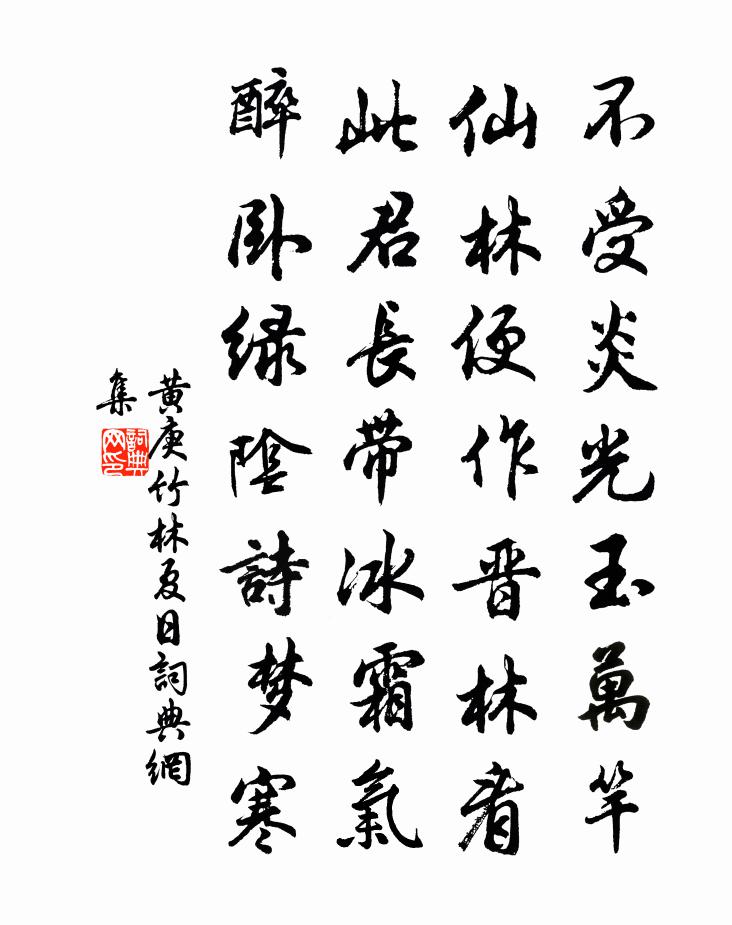 不受炎光玉萬竿
仙林便作晋林看
此君長带冰霜氣
醉卧绿陰詩梦寒
黄庚竹林夏日詞典網
集
詞典网印